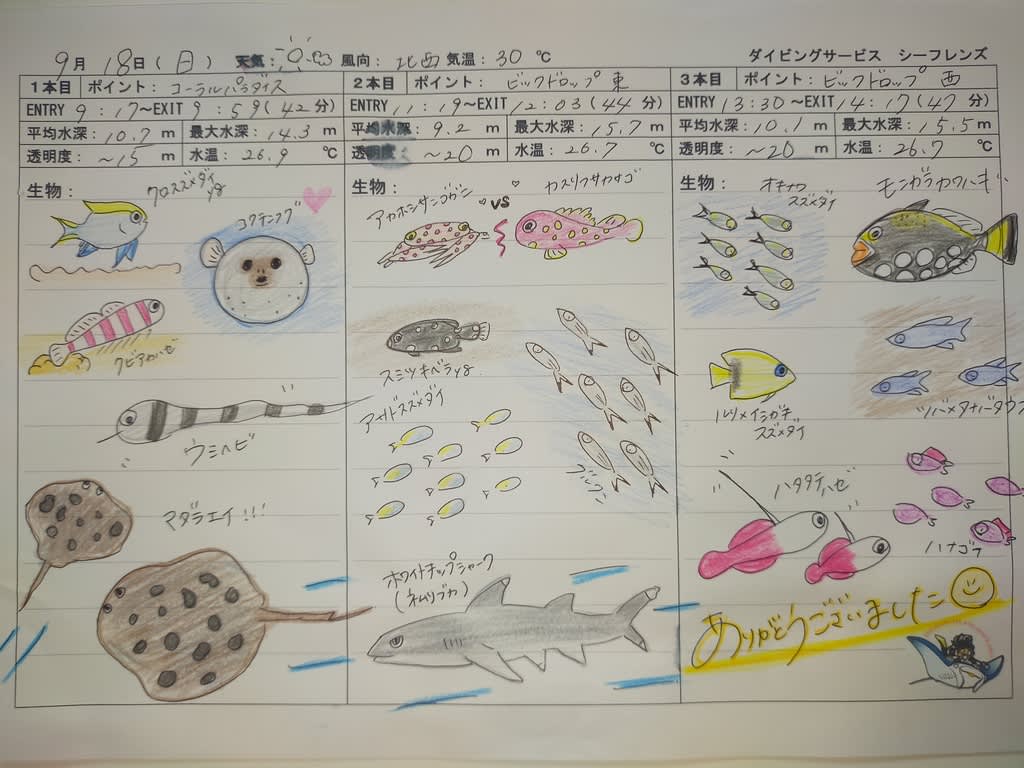 9月 18日(日) 天気: 風向: 北西 気温: 30 ℃
ダイビングサービス シーフレンズ
1本目 ポイント: コーラルパラダイス
ENTRY 9:17~EXIT 9:59(42分)
平均水深: 10.7 m 最大水深: 14.3 m
透明度: ~15 m 水温: 26.9 ℃
生物:
クロスズメダイ
yg
コクテンフグ
クビアカハゼ
ウミヘビ
マダラエイ!!!
2本目 ポイント: ビックドロップ東
ENTRY 11:19~EXIT 12:03(44分)
平均水深: 9.2 m 最大水深: 15.7 m
透明度: ~20 m 水温: 26.7 ℃
生物:
アカホシサンゴガニ
vs
カスリフサカサゴ
スミツキベラyg.
アサドスズメダイ
グルクン
ホワイトチップシャーク
(ネムリブカ)
3本目 ポイント: ビックドロップ 西
ENTRY 13:30~EXIT 14:17(47分)
平均水深: 10.1 m 最大水深: 15.5 m
透明度: ~20 m 水温: 26.7 ℃
生物:
オキナワ
スズメダイ
モンガラカワハギ
ルリメイシガキ
スズメダイ
ツバメタナバタウオ
ハタタテハゼ
ハナゴイ
ありがとうございました